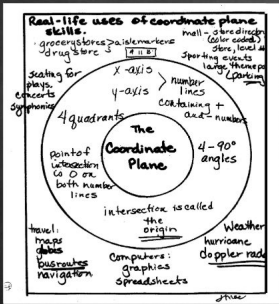 Real-life uses of coordinate plane
skills.
grocery stores > aisle markers
drug store
mall - store direct
(color coded)
store, level #
sporting events
large theme p
(parking
seating for
plays,
concerts
symphonies
x-axis
y-axis
> number
lines
containing +
and - numbers
4 quadrants
The
Coordinate
Plane
point of
intersection
is 0 on
both number
lines
4-90°
angles
intersection is called
the
origin
travel:
maps
globes
bus routes
navigation
computers:
graphics
spreadsheets
Weather
hurricane
doppler rada